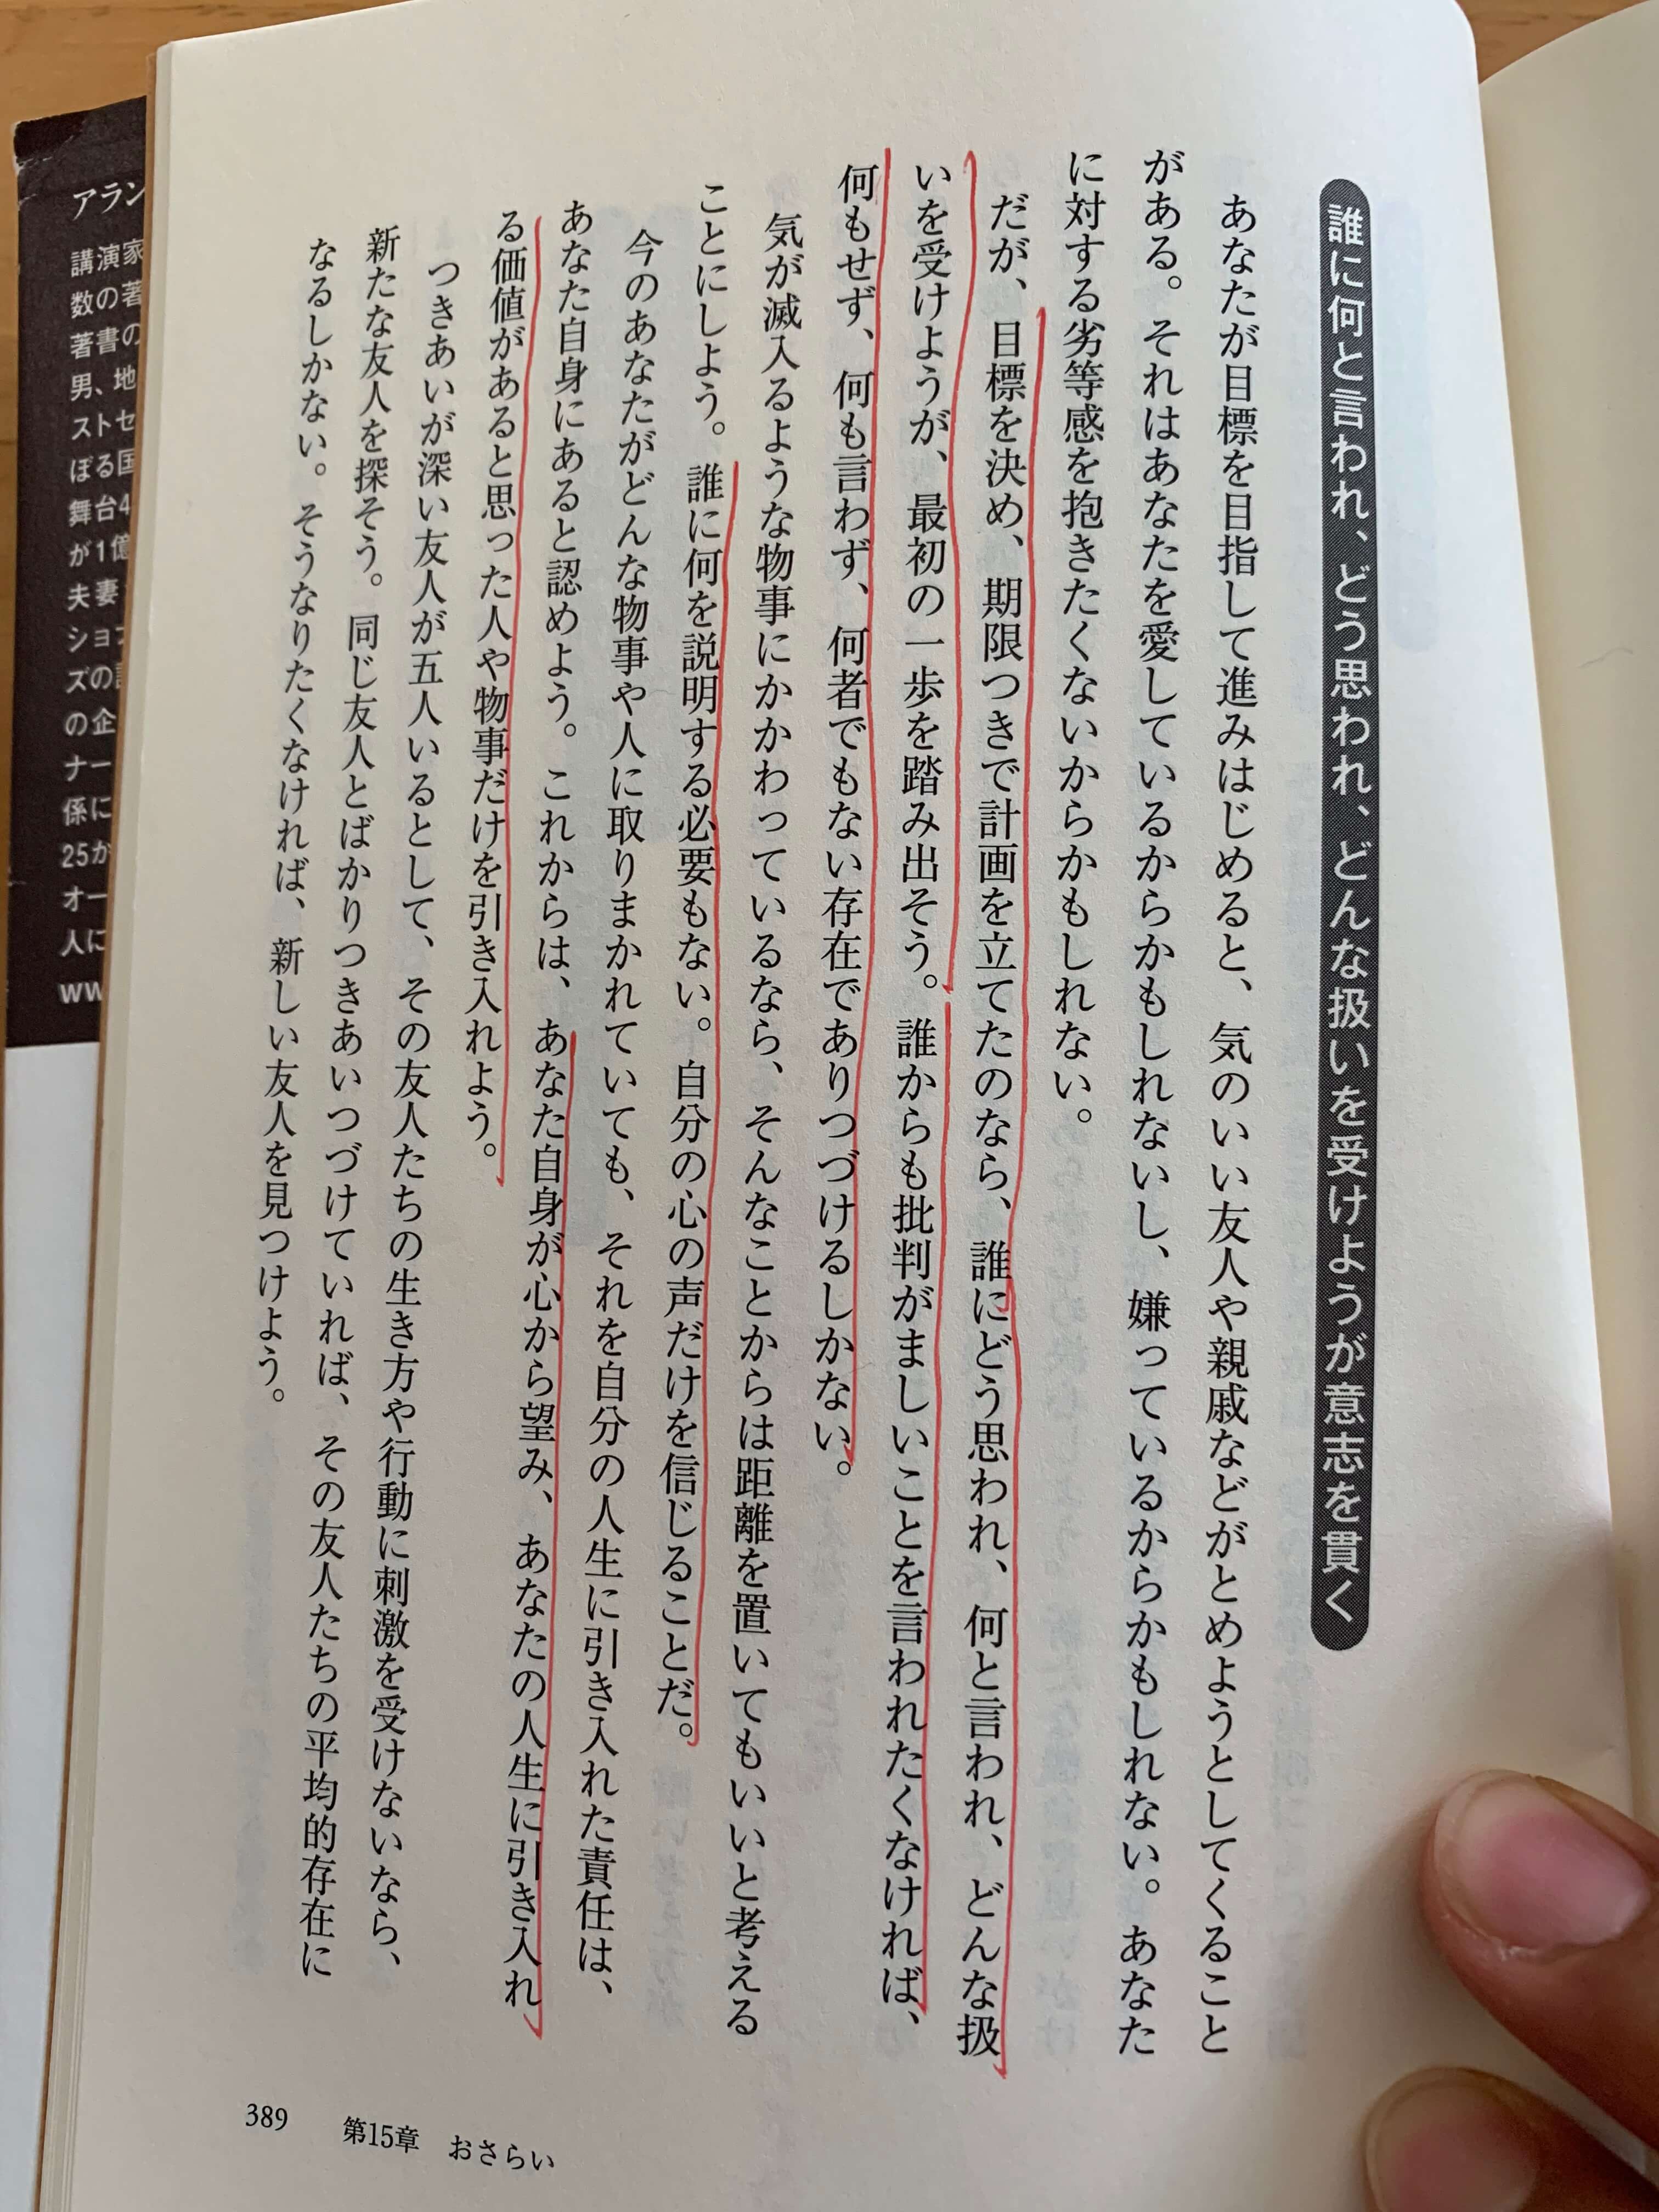 誰に何と言われ、どう思われ、どんな扱いを受けようが意志を貫く
あなたが目標を目指して進みはじめると、気のいい友人や親戚などがとめようとしてくること
がある。それはあなたを愛しているからかもしれないし、嫌っているからかもしれない。あなた
に対する劣等感を抱きたくないからかもしれない。
だが、目標を決め、期限つきで計画を立てたのなら、誰にどう思われ、何と言われ、どんな扱
いを受けようが、最初の一歩を踏み出そう。誰からも批判がましいことを言われたくなければ、
何もせず、何も言わず、何者でもない存在でありつづけるしかない。
気が滅入るような物事にかかわっているなら、そんなことからは距離を置いてもいいと考える
ことにしよう。誰に何を説明する必要もない。自分の心の声だけを信じることだ。
今のあなたがどんな物事や人に取りまかれていても、それを自分の人生に引き入れた責任は、
あなた自身にあると認めよう。これからは、あなた自身が心から望み、あなたの人生に引き入れ
る価値があると思った人や物事だけを引き入れよう。
つきあいが深い友人が五人いるとして、その友人たちの生き方や行動に刺激を受けないなら、
新たな友人を探そう。同じ友人とばかりつきあいつづけていれば、その友人たちの平均的存在に
なるしかない。そうなりたくなければ、新しい友人を見つけよう。
389 第15章 おさらい
アラン
講演家
数の著
著書の
男、地
ストセ
ぼる国
舞台4
が1億
夫妻
ショ
ズの
の企
ナー
係に
25か
オー
人に
ww